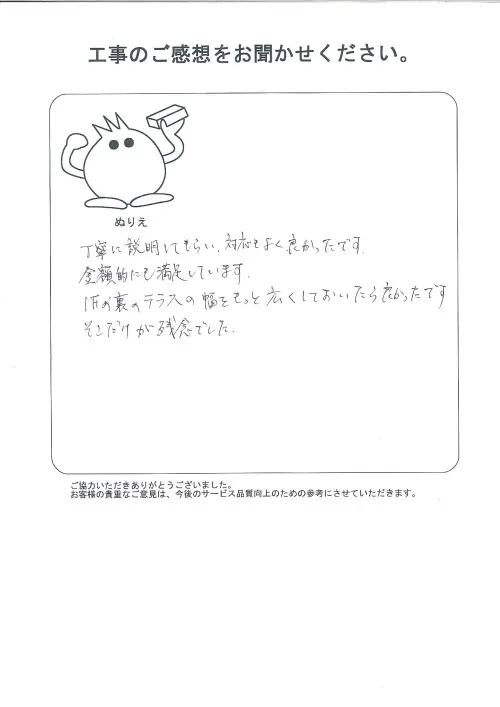 工事のご感想をお聞かせください。
ぬりえ
丁寧に説明してもらい、対応もよく良かったです.
金額的にも満足しています.
1Fの裏のテラスの幅をもっと広くしておいたら良かったです
そこだけが残念でした.
ご協力いただきありがとうございました。
お客様の貴重なご意見は、今後のサービス品質向上のための参考にさせていただきます。